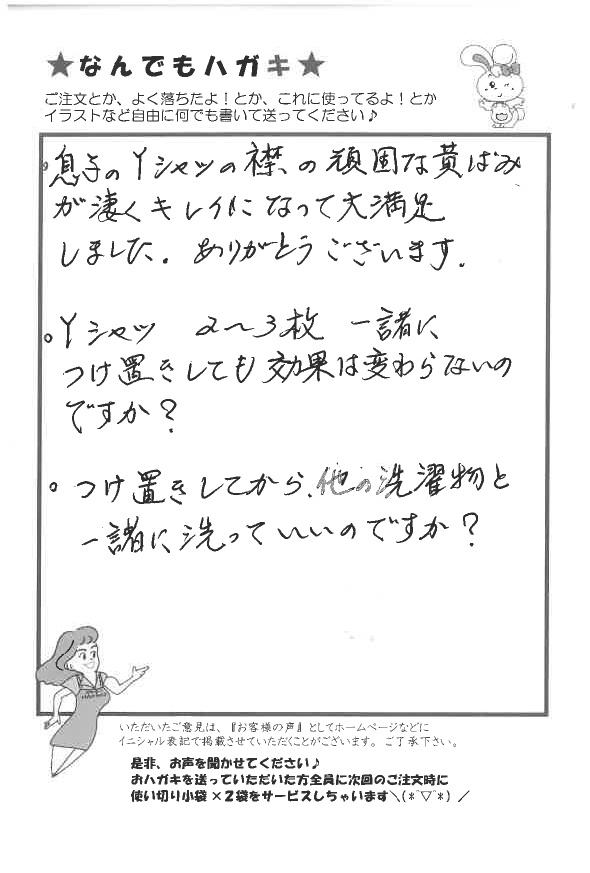 ★なんでもハガキ★
ご注文とか、よく落ちたよ！とか、これに使ってるよ！とか
イラストなど自由に何でも書いて送ってください♪
。息子のYシャツの襟、の頑固な黄ばみ
が凄くキレイになって大満足
しました。ありがとうございます。
。Yシャツ 2〜3枚 一諸に
つけ置きしても効果は変わらないの
ですか？
。つけ置きしてから、他の洗濯物と
一諸に洗っていいのですか？
いただいたご意見は、『お客様の声』としてホームページなどに
イニシャル表記で掲載させていただくことがございます。ご了承下さい。
是非、お声を聞かせてください♪
おハガキを送っていただいた方全員に次回のご注文時に
使い切り小袋×2袋をサービスしちゃいます＼(*^▽^*)／